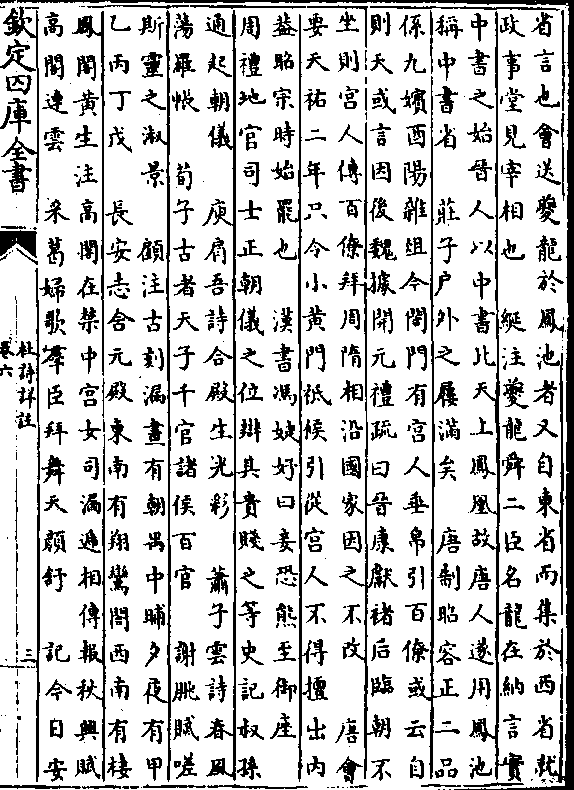 省言也會送夔龍於鳳池者又自東省而集於西省就
政事堂見宰相也　綖注夔龍舜二臣名龍在納言實
中書之始晉人以中書比天上鳳凰故唐人遂用鳳池
稱中書省　莊子户外之屨滿矣　唐制昭容正二品
係九嬪酉陽雜俎今閤門有宮人垂帛引百僚或云自
則天或言因後魏據開元禮疏曰晉康獻褚后臨朝不
坐則宮人傳百僚拜周隋相沿國家因之不改　唐會
要天祐二年只令小黄門祗候引從宮人不得擅出内
葢昭宗時始罷也　漢書馮婕妤曰妾恐熊至御座
周禮地官司士正朝儀之位辨其貴賤之等史記叔孫
通起朝儀　庾肩吾詩合殿生光彩　蕭子雲詩春風
蕩羅帳　荀子古者天子千官諸侯百官　謝朓賦嗟
斯靈之淑景　顧注古刻漏晝有朝禺中晡夕夜有甲
乙丙丁戊　長安志含元殿東南有翔鸞閣西南有棲
鳳閣黄生注高閣在禁中宮女司漏遞相傳報秋興賦
高閣連雲　采葛婦歌羣臣拜舞天顔舒　記今日安
欽定四庫全書
杜詩詳註
卷六
三